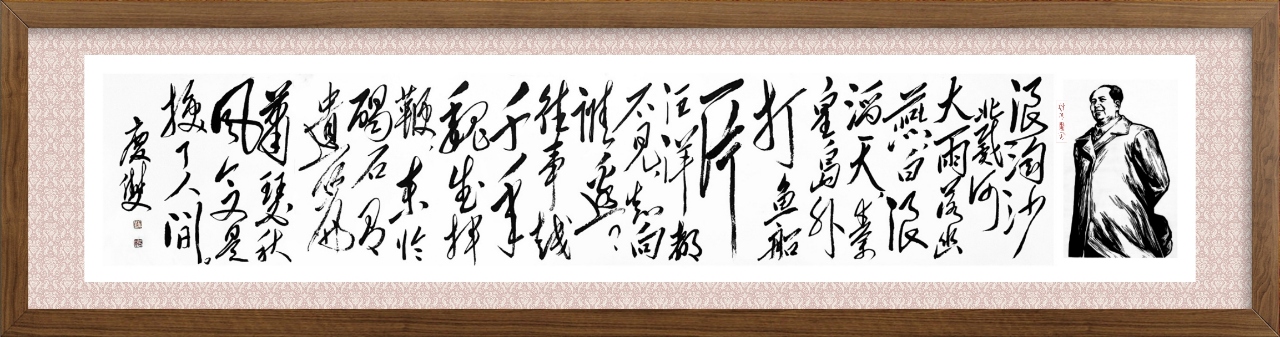 浪淘沙
北戴河
大雨落幽
燕白浪
滔天，秦
皇島外
打鱼船
一片
汪洋都
不见，知向
谁边？
往事越
千年
魏武挥
鞭，东临
碣石有
遗篇
萧瑟秋
风今又是
换了人间。
慶雙